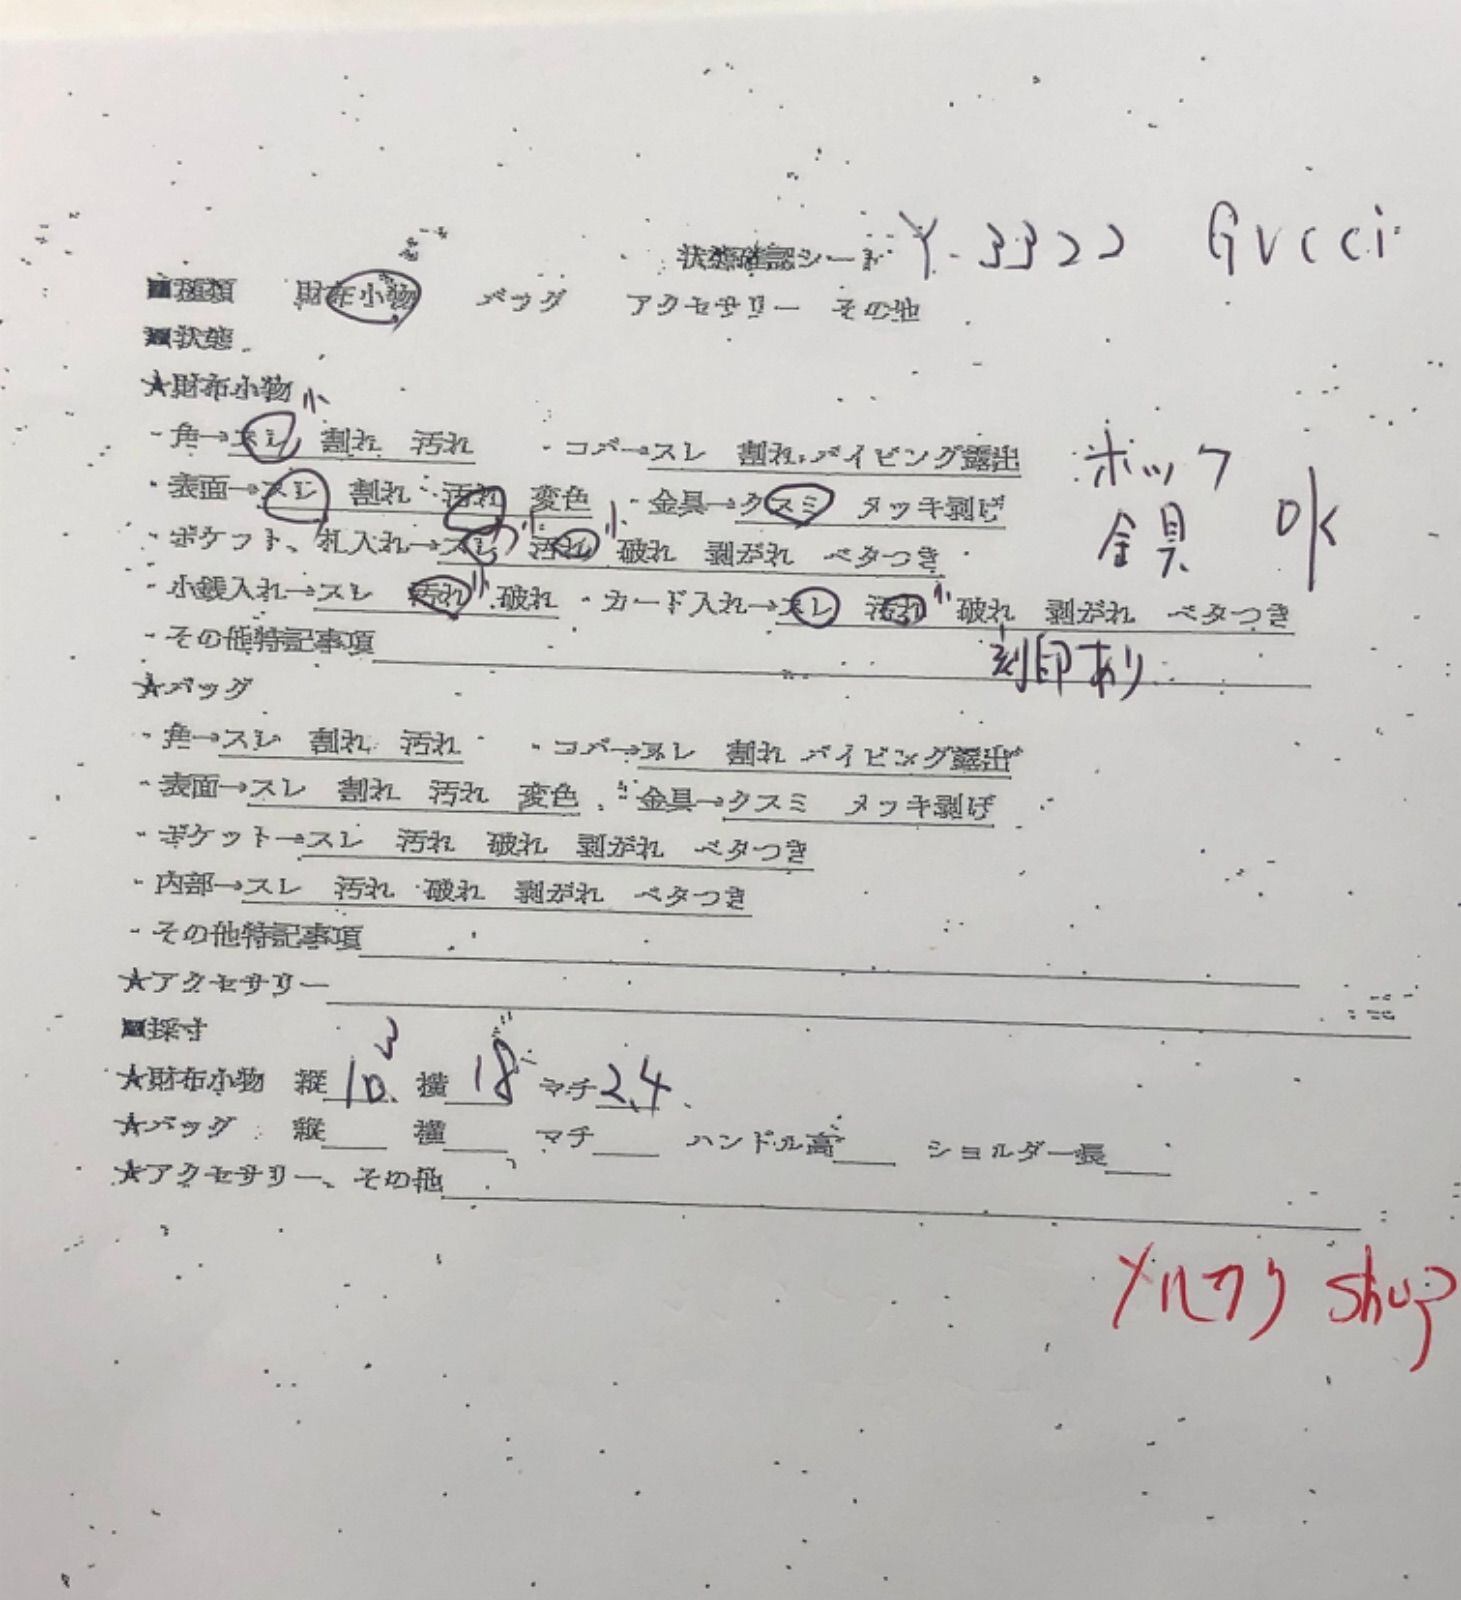 状態確認シート Y-3322 GUCCI
■種類 財布小物 バッグ アクセサリー その他
■状態
★財布小物
小
・角→スレ 割れ 汚れ ・コバ→スレ 割れ パイピング露出
ホック
・表面→スレ 割れ 汚れ 変色 ・金具→クスミ メッキ剥げ
金具 OK
・ポケット、札入れ→スレ小 汚れ小 破れ 剥がれ ベタつき
・小銭入れ→スレ 汚れ小 破れ ・カード入れ→スレ 汚れ小 破れ 剥がれ ベタつき
・その他特記事項 刻印あり
★バッグ
・角→スレ 割れ 汚れ ・コバ→スレ 割れ パイピング露出
・表面→スレ 割れ 汚れ 変色 ・金具→クスミ メッキ剥げ
・ポケット→スレ 汚れ 破れ 剥がれ ベタつき
・内部→スレ 汚れ 破れ 剥がれ ベタつき
・その他特記事項
★アクセサリー
■採寸
★財布小物 縦10.3 横18 マチ2.4
★バッグ 縦 横 マチ ハンドル高 ショルダー長
★アクセサリー、その他
メルカリ shop